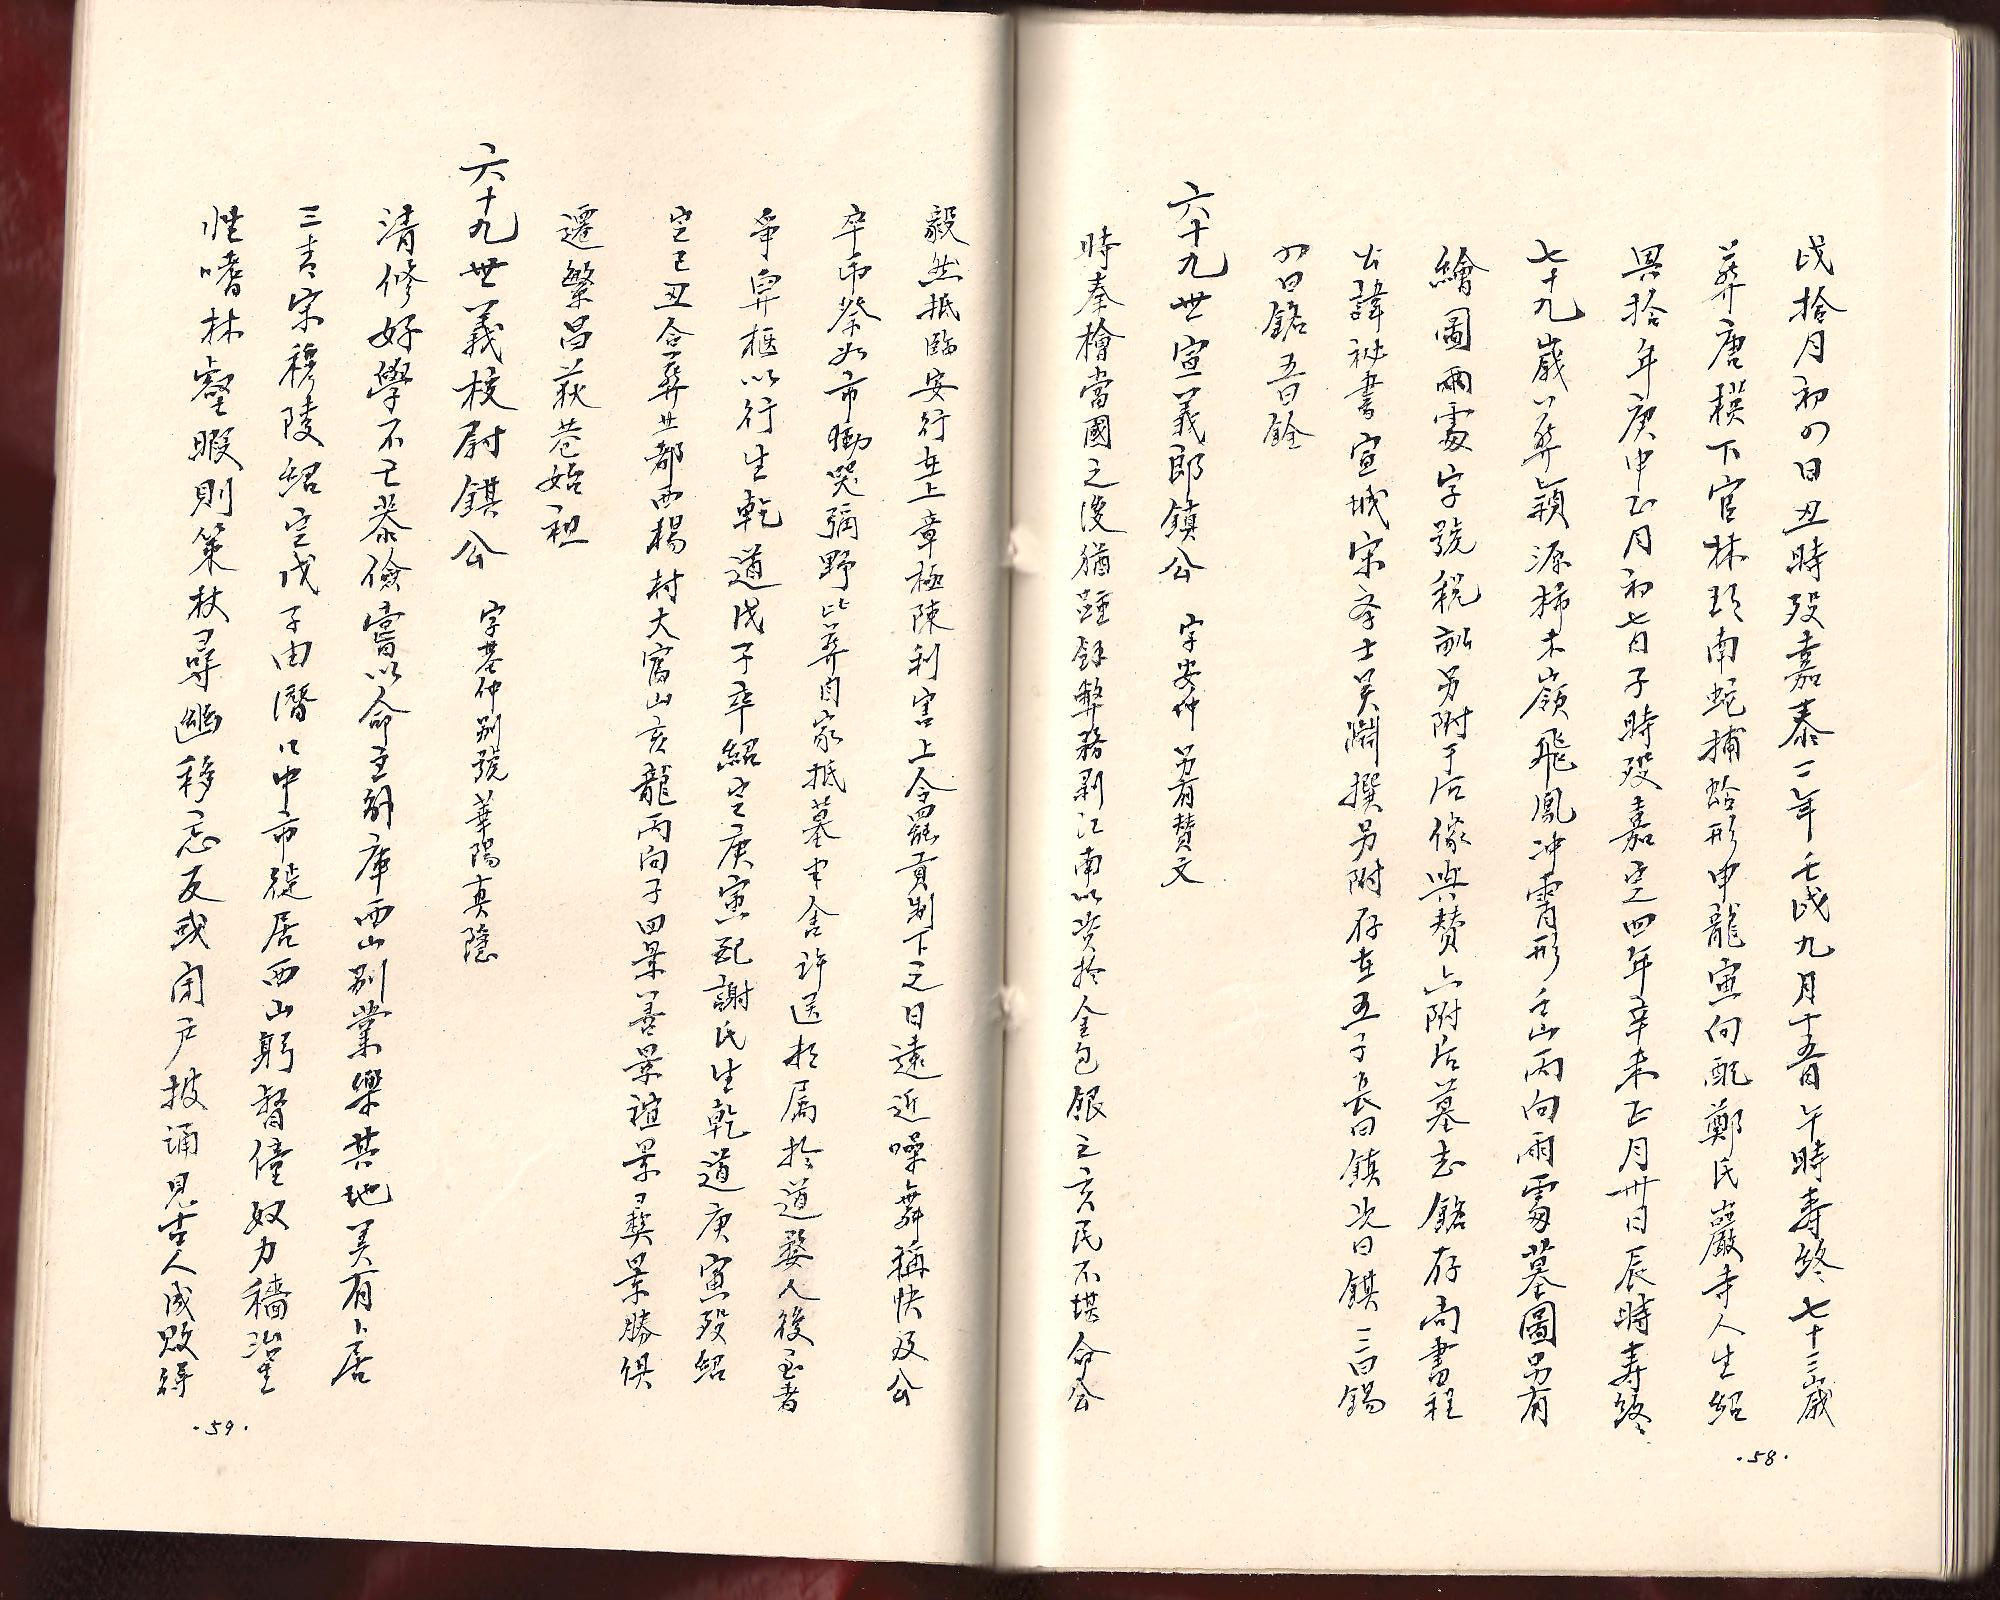 戌拾月初四日丑時歿嘉泰二年壬戌九月十五日午時寿終七十三歲
葬唐模下官林珍南蛇捕蛤形申龍寅向配鄭氏巖寺人生紹
興拾年庚申正月初七日子時歿嘉定四年辛未正月卅日辰時寿終
七十九歲公葬穎源柿木嶺飛鳳冲霄形壬山丙向雨霧墓圖另有
繪圖雨霧字號税畝另附于后像與赞亦附后墓志銘存尚書程
公諱袐書宣城宋孝士吴淵撰另附存在五子長曰鎮次曰鏌三曰錫
四曰銘五曰銓
六十九世宣義郎鎮公 字安仲 另有赞文
時奉檜當國之後猶踵餘弊務剥江南以資於金包銀之亥民不堪命公
·58·
毅然抵臨安行在上章極陳利害上令罷貢制下之日遠近噪舞稱快及公
卒吊祭如市慟哭彌野比葬自家抵墓中舍許送於属於道婺人後至者
争舁柩以行生乾道戊子卒紹定庚寅配謝氏生乾道庚寅歿紹
定己丑合葬廿都西楊村大富山亥龍丙向子四景善景誼景彛景勝俱
遷繁昌荻巷始祖
六十九世義校尉鏌公 字基仲别號華陽真隱
清修好學不亡恭儉嘗以命主舒庫西山别業樂其地美有卜居
三青宋穆陵紹定戊子由潛口中市徙居西山躬督僮奴力穡治生
性嗜林壑暇則策杖尋幽移忘反或闭户披诵見古人成败得
·59·